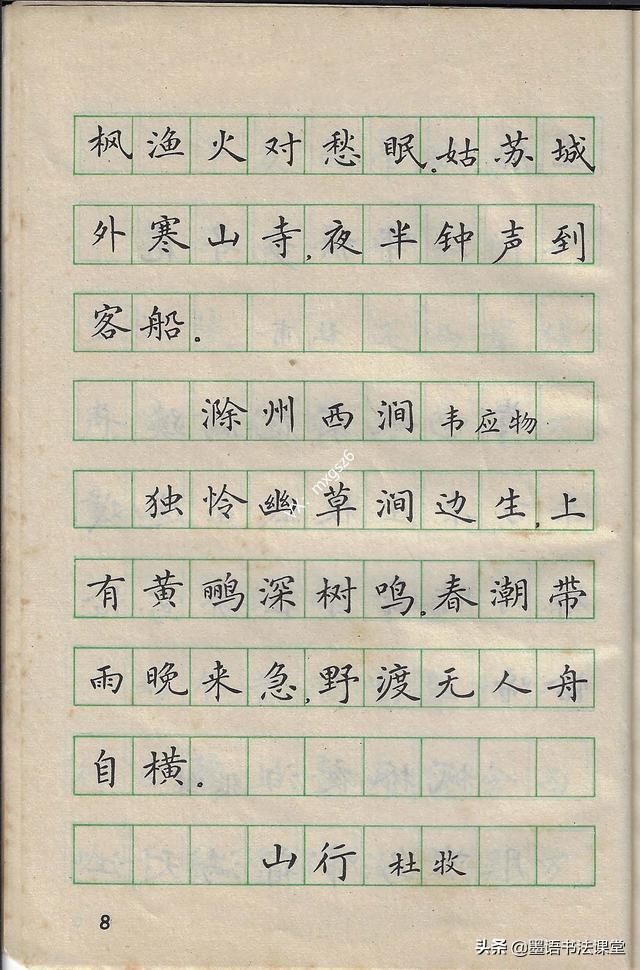 枫渔火对愁眠。姑苏城
外寒山寺,夜半钟声到
客船。
滁州西涧 韦应物
独怜幽草涧边生,上
有黄鹂深树鸣。春潮带
雨晚来急,野渡无人舟
自横。
山行 杜牧
8
mxgsz6
头条 @墨语书法课堂